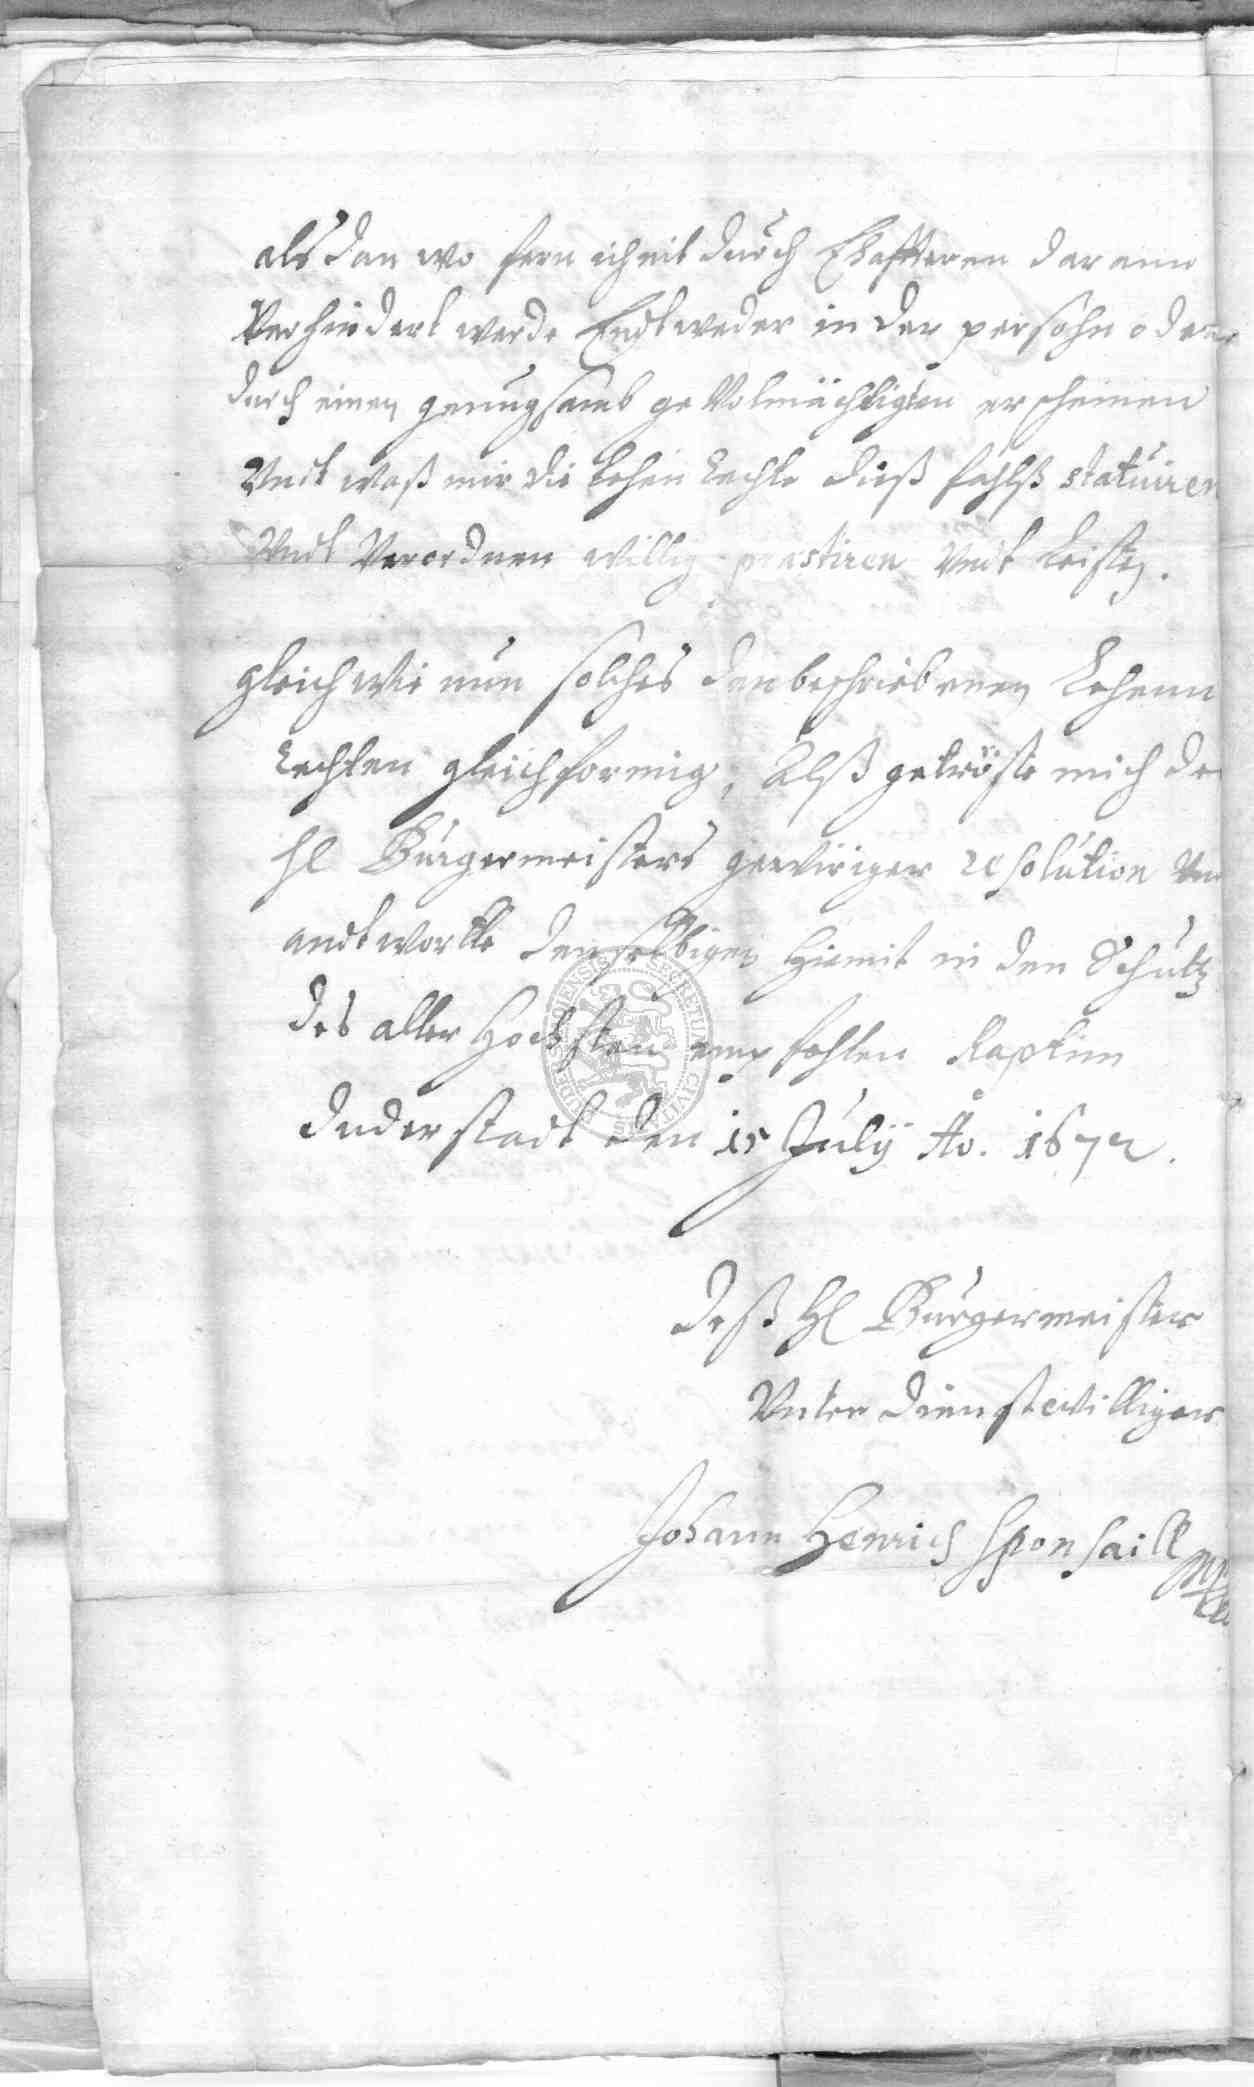 als dan wo fern ich nit durch Ehafften daran
Verhindert werde Endtweder in der persohn oder
durch einen genugsamb geVolmächtigten erscheinen
Undt waß mir die Lehen Rechte dieß fahlß statuiren
Undt Verordnen willig prestiren Undt Leisten.
gleich wie nun solches den beschriebenen Lehenn
Rechten gleichformig, Alß getröste mich de
Hl Burgermeisters gewüriger resolution Un
andtwortte denselbigen hiemit in den Schutz
des aller Höchsten empfohlen Raptim
duderstadt den 15 July Ao. 1672.
deß Hl Burgermeister
Unter dienstwilliger
Johann Henrich Sponsaill
mp
SECRETUM CIVIT DUDERSTADIENSIS